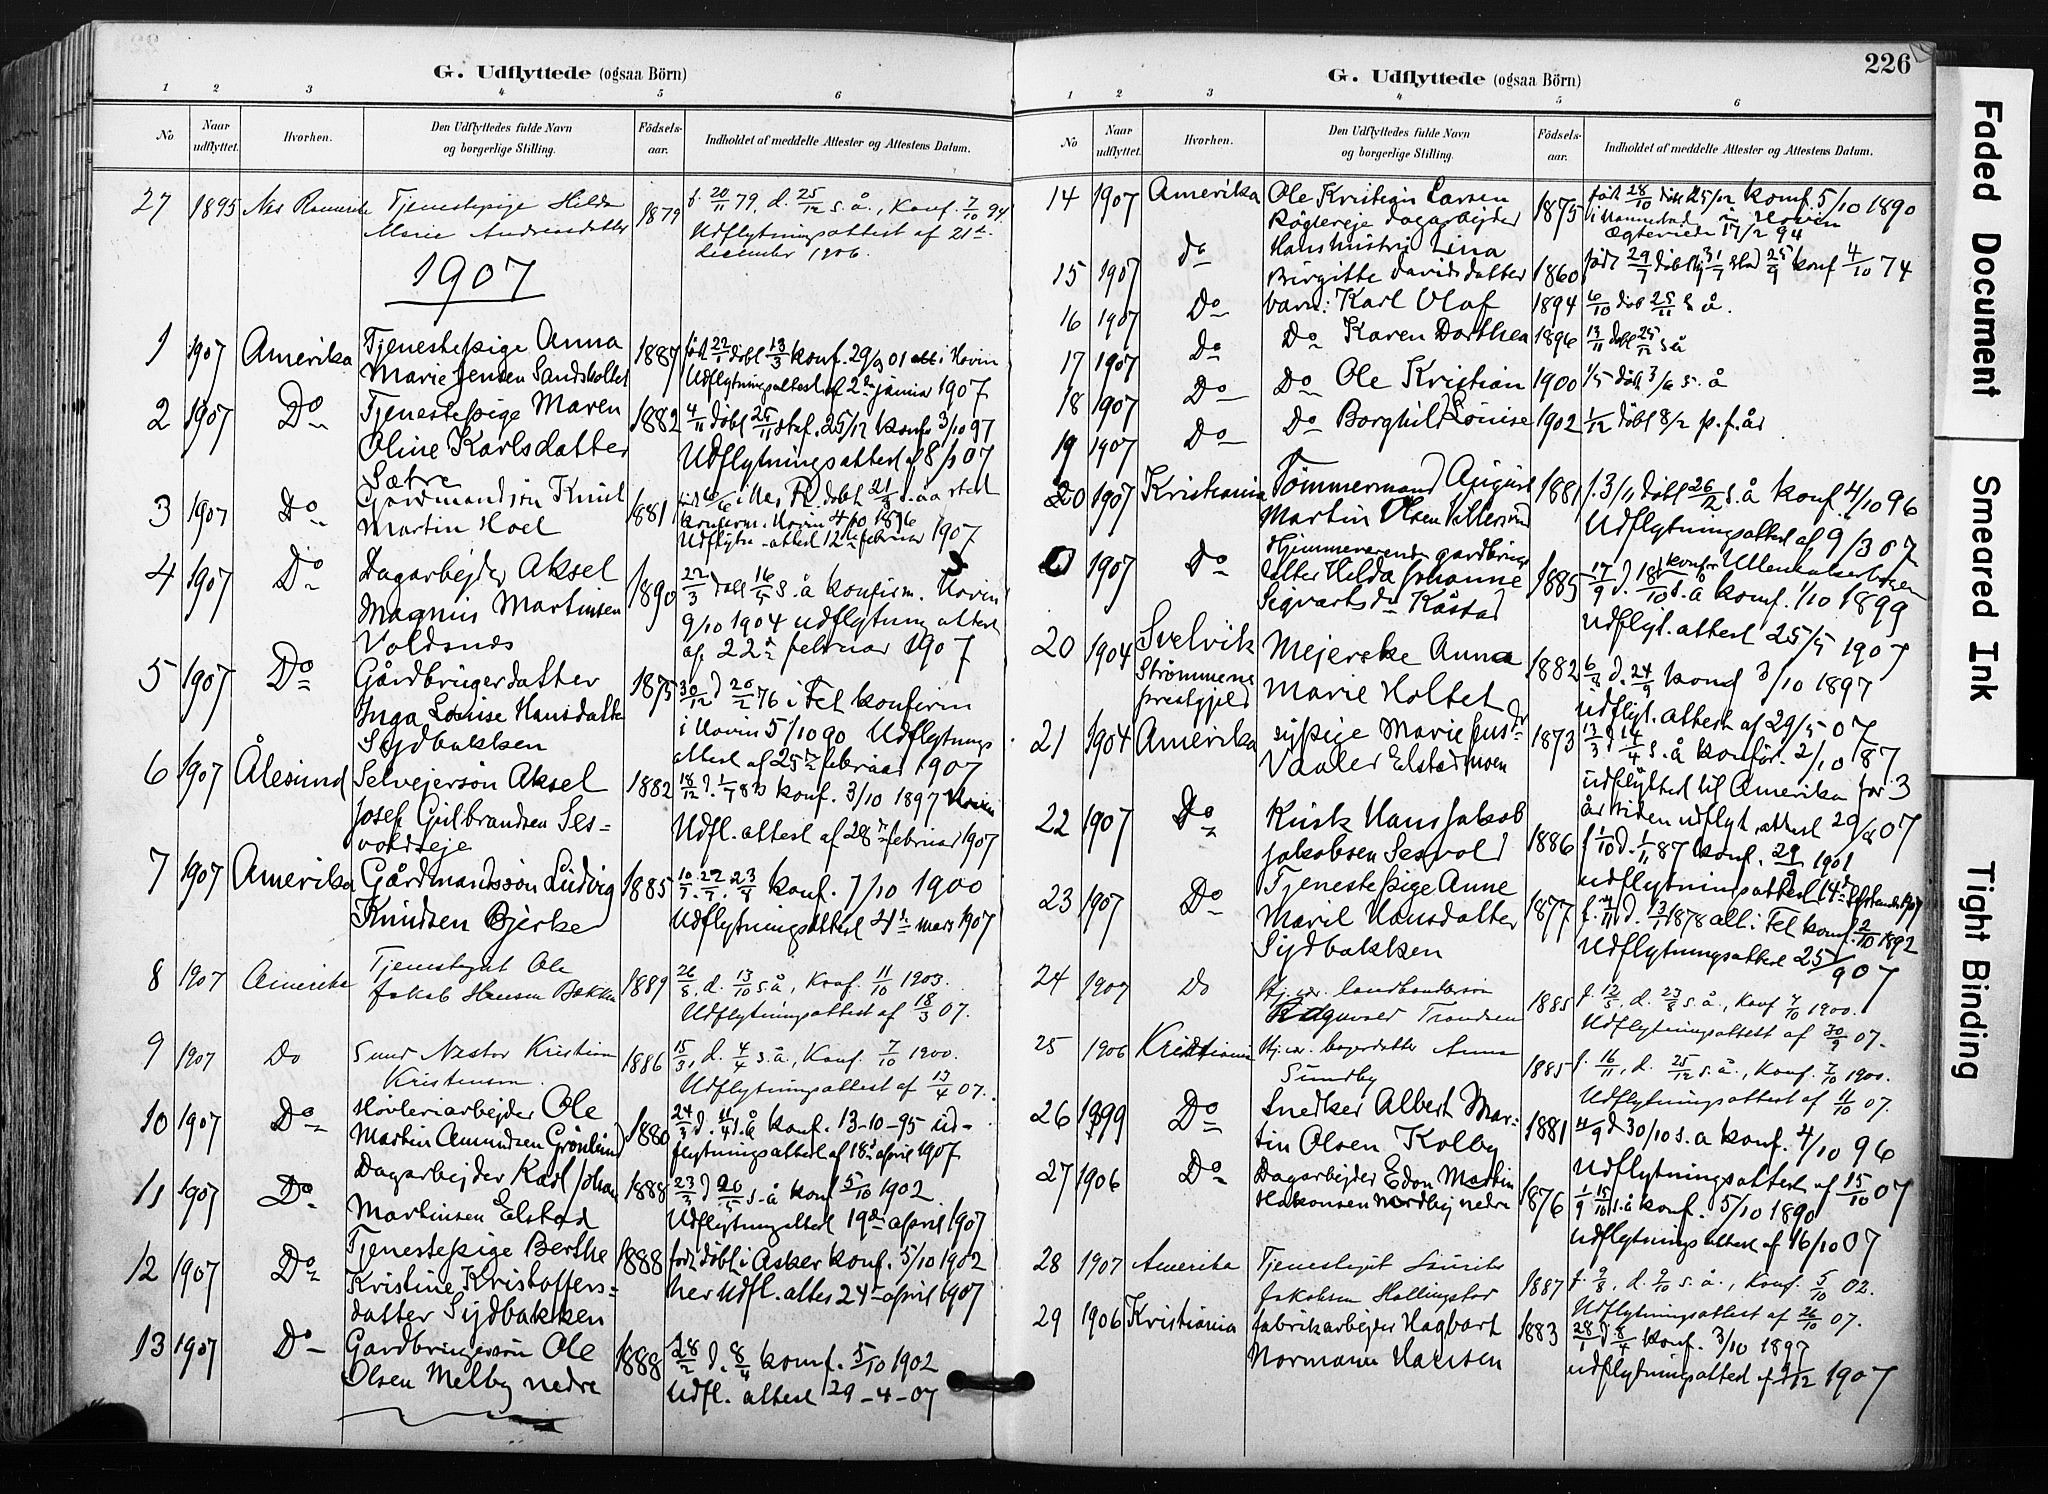 G. Udflyttede (ogsaa Börn)
1 2 3 4 5 6
No
Naar udflyttet.
Hvorhen.
Den Udflyttedes fulde Navn og borgerlige Stilling.
Födsels-aar.
Indholdet af meddelte Attester og Attestens Datum.
27 1895 Nes Romerike Tjenestepige Hilda 1879 f. 20/11 79, d. 25/12 s.å., Konf. 7/10 94.
Marie Andreasdatter Udflytningsattest af 21de
december 1906.
1907
1 1907 Amerika Tjenestepige Anna 1887 født 22/1 døbt 13/3 konf. 29/9 01 alt i Hovin
Marie Jensen Sandsholtet Udflytningsattest af 2den januar 1907
2 1907 Do Tjenestepige Maren 1882 4/11 døbt 25/11 staf. 25/12 konf 3/10 97
Oline Karlsdatter Udflytningsattest af 8/1 07
Sætre
3 1907 Do Gårdmandssøn Knut 1881 i Nes R. døbt 21/8 s.å
Martin Hoel konfirm. Hovin 4/10 1896
Udflytn-attest 12te februar 1907
4 1907 Do Dagarbejder Aksel 1890 22/3 døbt 16/5 s.å konfirm. Hovin
Magnus Martinsen 9/10 1904 udflytning attest
Voldsnes af 22de februar 1907
5 1907 Do Gårdbrugerdatter 1875 30/12 d 20/2 76 i Fet konfirm
Inga Louise Hansdatter i Hovin 5/10 90 Udflytnings
Sydbakken attest af 25de februar 1907
6 1907 Ålesund Selvejersøn Aksel 1882 18/12 d. 1/1 83 konf. 3/10 1897 Hovin
Josef Gulbrandsen Ses= Udfl. attest af 28de februar 1907
voldseje
7 1907 Amerika Gårdmandssøn Ludvig 1885 konf. 7/10 1900
Knudsen Bjerke Udflytningsattest 4de mars 1907
8 1907 Amerika Tjenestegut Ole 1889 26/8, d. 13/10 s.å., Konf. 11/10 1903.
Jakob Hansen Bakken Udflytningsattest af 18/3 07.
9 1907 Do Smed Nestor Kristian 1886 15/3, d. 4/4 s.å., Konf. 7/10 1900.
Kristensen. Udflytningsattest af 13/4 07.
10 1907 Do Høvleriarbejder Ole 1880 24/3 d. 11/4 s.å konf. 13-10-95 ud-
Martin Amundsen Grønlund flytningsattest af 18de april 1907
11 1907 Do Dagarbejder Karl Johan 1888 23/3 d 20/5 s.å konf 5/10 1902
Martinsen Elstad Udflytningattest 19de april 1907
12 1907 Do Tjenestepige Berthe 1888 født døbt i Asker konf. 5/10 1902
Kristine Kristoffers= her Udfl. attes 24de april 1907
datter Sydbakken
13 1907 Do Gardbrugersøn Ole 1888 28/2 d. 8/4 konf. 5/10 1902
Olsen Melby nedre Udfl. attest 29-4-07
G. Udflyttede (ogsaa Börn)
226
1 2 3 4 5 6
No
Naar udflyttet.
Hvorhen.
Den Udflyttedes fulde Navn og borgerlige Stilling.
Födsels-aar.
Indholdet af meddelte Attester og Attestens Datum.
14 1907 Amerika Ole Kristian Larsen 1875 født 28/10 døbt 25/12 konf. 5/10 1890
dagarbejder i Hovin
Ægteviede 17/2 94
15 1907 do Hans hustru Lina
Birgitte Davidsdatter 1860 født 29/7 døbt 31/7 stad 25/9 konf 4/10 74
16 1907 Do barn: Karl Olaf 1894 6/10 døb 25/11 s å.
17 1907 Do Do Karen Dorthea 1896 13/11 døbt 25/12 s å
18 1907 Do Do Ole Kristian 1900 1/5 døbt 3/6 s. å
19 1907 Do Do Borghild Louise 1902 1/12 døbt 8/2 p. f. år
20 1907 Kristiania Tømmermand August 1881 f. 3/11 døbt 26/12 s. å konf. 4/10 96
Martin Olsen Udflytningsattest af 9/3 07
1907 Do Hjemmeværende gardbrugs
datter Hilda Johanne 1885 17/9 d. 18/10 s. å konf. 1/10 1899
Sigvartsdr Kåstad Udflyt. attest 25/5 1907
20 1904 Svelvik Mejerske Anna 1882 6/8 d. 24/9 konf 3/10 1897
Strømmens Marie Holtet udflyt. attest af 29/5 07
prestgjeld
21 1904 Amerika sypige Marie Gus- 1873 13/3 d 14/4 s. å konfir. 2/10 87.
Vaaler Elstadmoen udflyttet til Amerika for 3
år siden udflyt. attest 20/8 07
22 1907 Do Kusk Hans Jakob 1886 f 1/10 d. 1/11 87 konf. 29/9 1901
Jakobsen Sesvold udflytningsattest 14de September 1907
23 1907 Do Tjenestepige Anne 1877 f. d. 1878 alt i Fet konf. 2/10 1892
Maril Hansdatter Udflytningsattest 25/9 07
Sydbakken
24 1907 Do Hj. vær. landhandlersøn
Trondsen 1885 f. 12/5, d. 23/8 s. å., Konf 7/10 1900.
Udflytningsattest af 30/9 07.
25 1906 Kristiania Hj. vær. bagerdatter Anna
Sundby 1885 f. 16/11, d. 25/12 s. å., Konf. 7/10 1900.
Udflytningsattest af 11/10 07.
26 1899 Do Snedker Albert Mar-
tin Olsen Kolby 1881 4/9 d 30/10 s. a konf. 4/10 96
Udflytningsattest af 15/10 07
27 1906 Do Dagarbejder Edon Martin
Hakonsen Nordby nedre 1876 1/9 15/10 s. å konf. 5/10 1890
udflytnings attest af 16/10 07
28 1907 Amerika Tjenestegut Laurits
Jakobsen Hellingstad 1887 f. 9/8, d. 9/10 s. å., Konf. 5/10 02.
Udflytningsattest af 26/10 07.
29 1906 Kristiania fabrikarbejder Hagbart 1883 28/1 d 8/4 konf. 3/10 1897
Normann Hansen udflytningsattest af 9/12 1907
Faded Document
Smeared Ink
Tight Binding